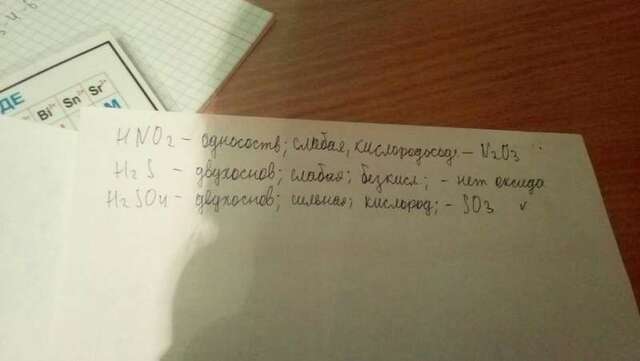 ДЕ
Bi³⁺ Sn²⁺ Sr²⁺
М
HNO2 - односоств; слабая, кислородсод; - N2O3
H2S - двухоснов; слабая; безкисл; - нет оксида
H2SO4 - двухоснов; сильная; кислород; - SO3